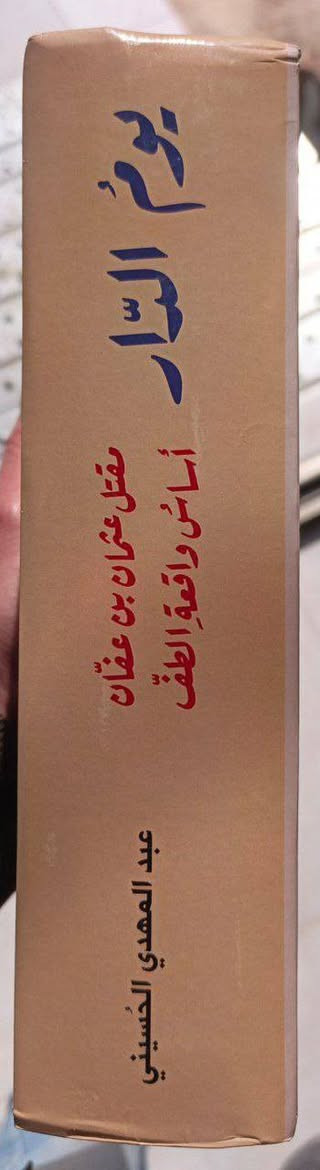 يومُ الدّار
مقتل عثمان بن عفّان
أساسُ واقعةِ الطفّ
عبد المهدي الحُسيني